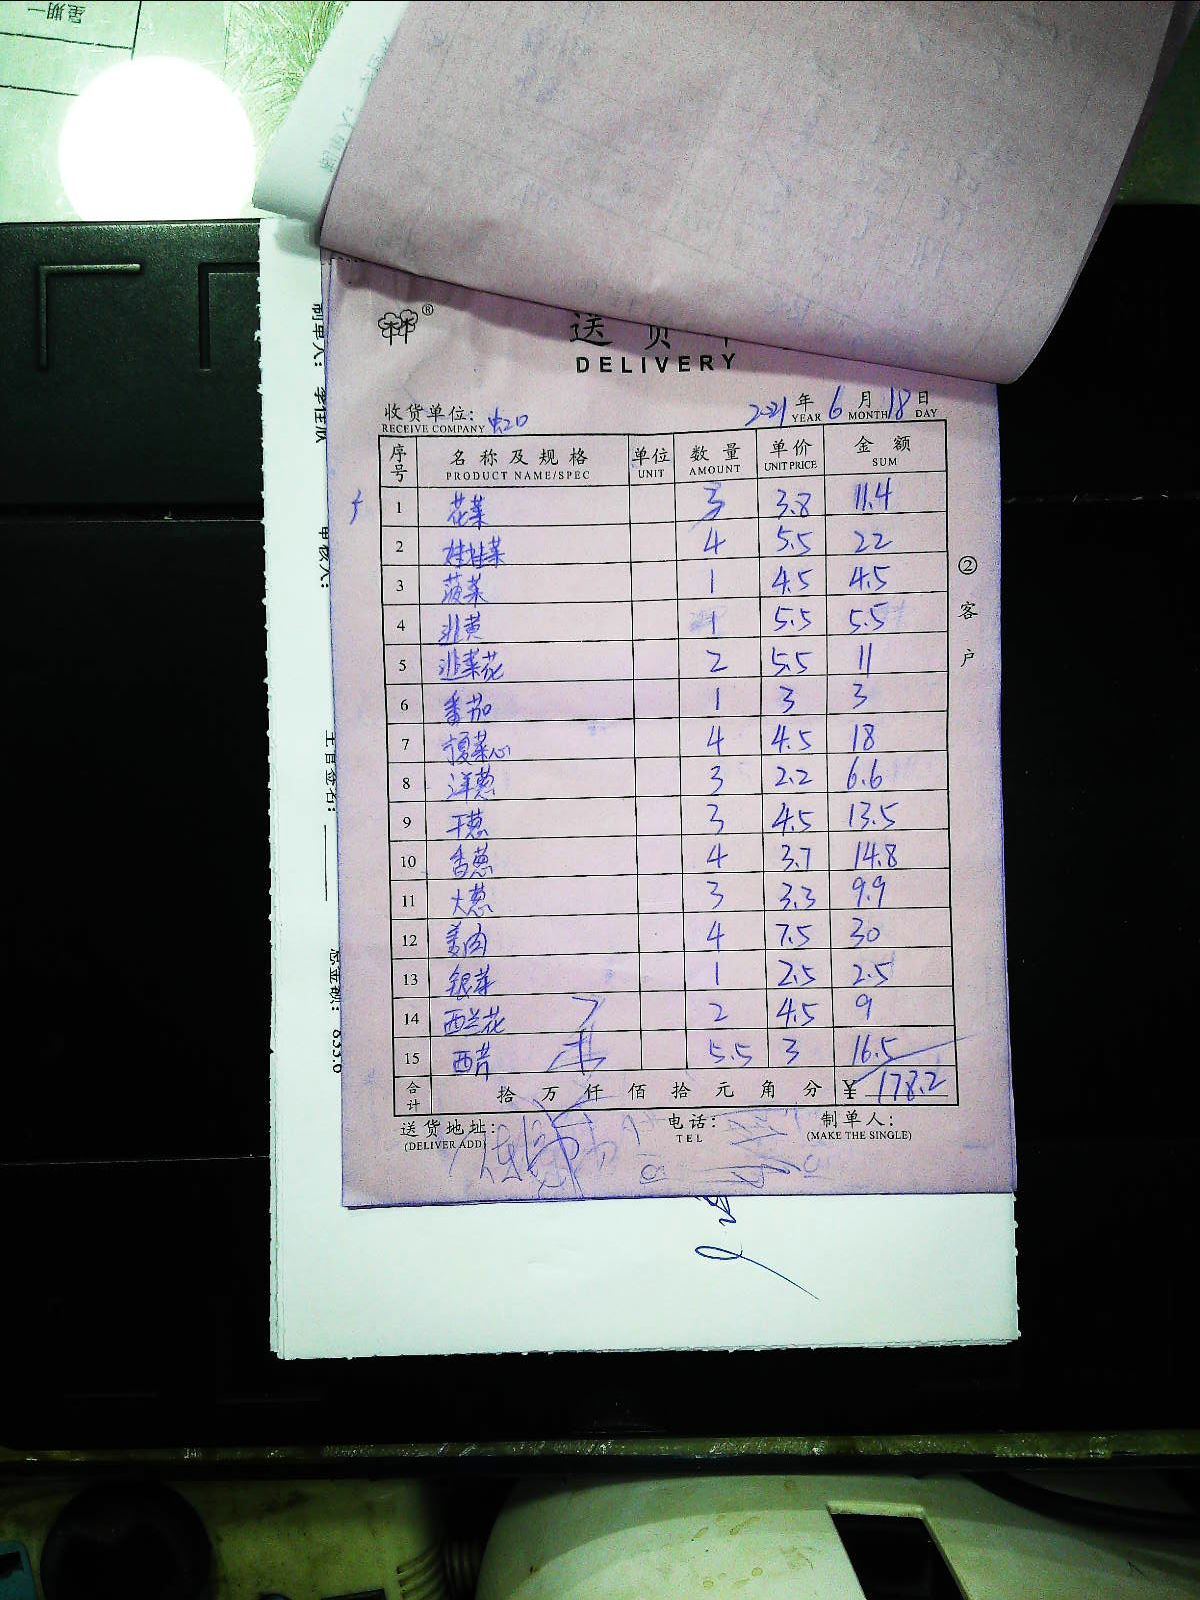 星期一
®
送货单
DELIVERY
收货单位: 虹口
RECEIVE COMPANY
2021 年 6 月 18 日
YEAR MONTH DAY
序号 名称及规格 单位 数量 单价 金额
PRODUCT NAME/SPEC UNIT AMOUNT UNIT PRICE SUM
1 花菜 3 3.8 11.4
2 娃娃菜 4 5.5 22
3 菠菜 1 4.5 4.5
4 韭黄 1 5.5 5.5
5 韭菜花 2 5.5 11
6 番茄 1 3 3
7 菜心 4 4.5 18
8 洋葱 3 2.2 6.6
9 干葱 3 4.5 13.5
10 香葱 4 3.7 14.8
11 大葱 3 3.3 9.9
12 姜肉 4 7.5 30
13 银芽 1 2.5 2.5
14 西兰花 2 4.5 9
15 西芹 5.5 3 16.5
合计 拾 万 仟 佰 拾 元 角 分 ¥ 178.2
送货地址: 电话: 制单人:
(DELIVER ADD) TEL (MAKE THE SINGLE)
② 客户
制单人:
审核人:
主管签名:
总金额: 833.6